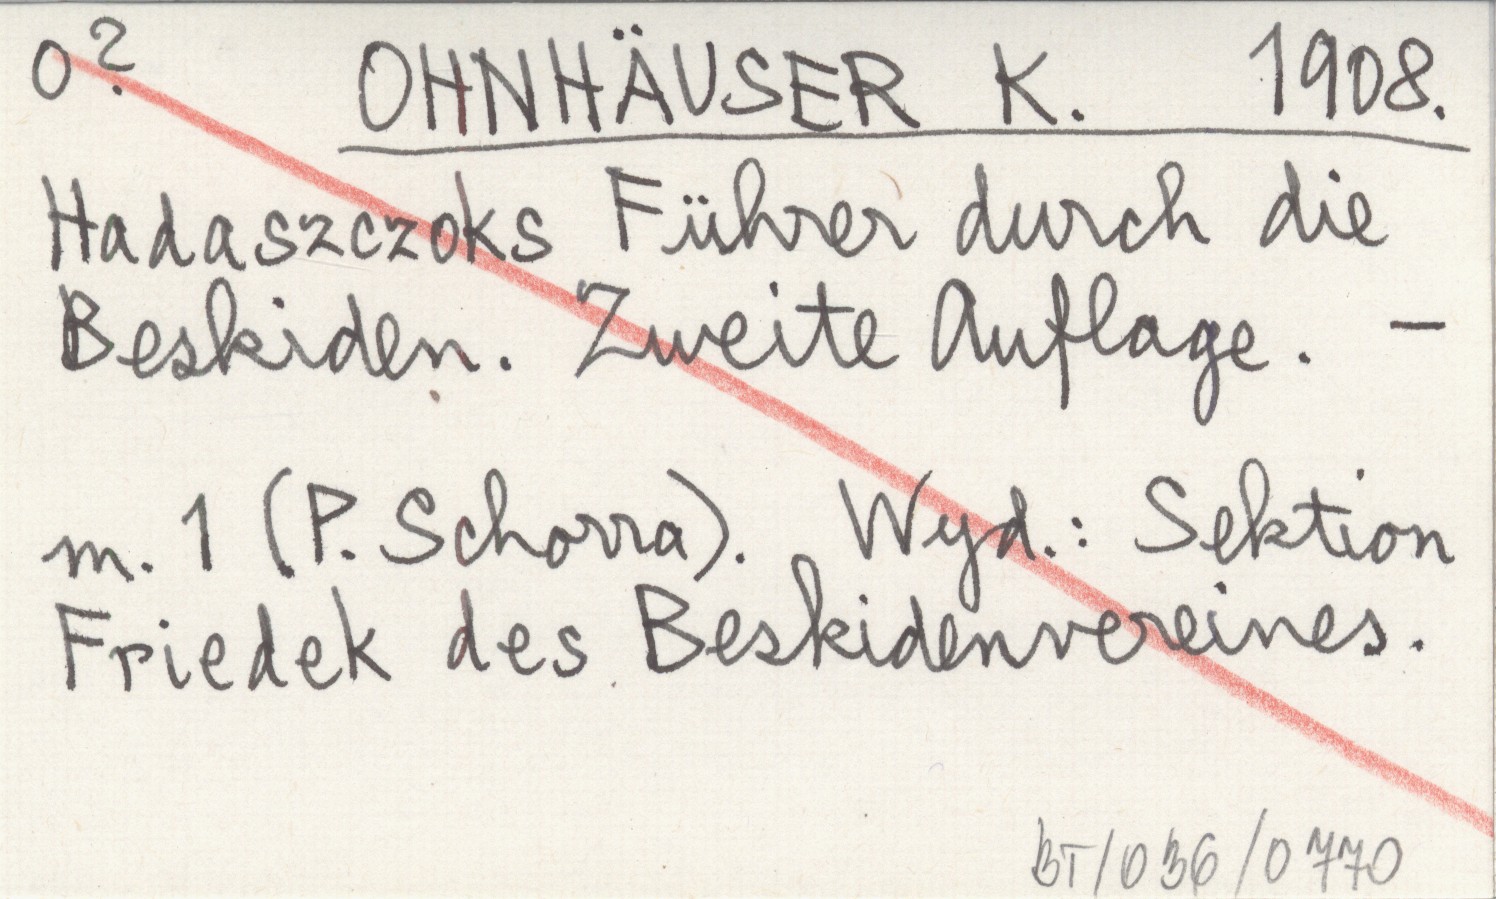 O? OHNHÄUSER K. 1908.
Hadaszczoks Führer durch die
Beskiden. Zweite Auflage. —
m. 1 (P. Schorra). Wyd.: Sektion
Friedek des Beskidenvereines.
BT/036/0770